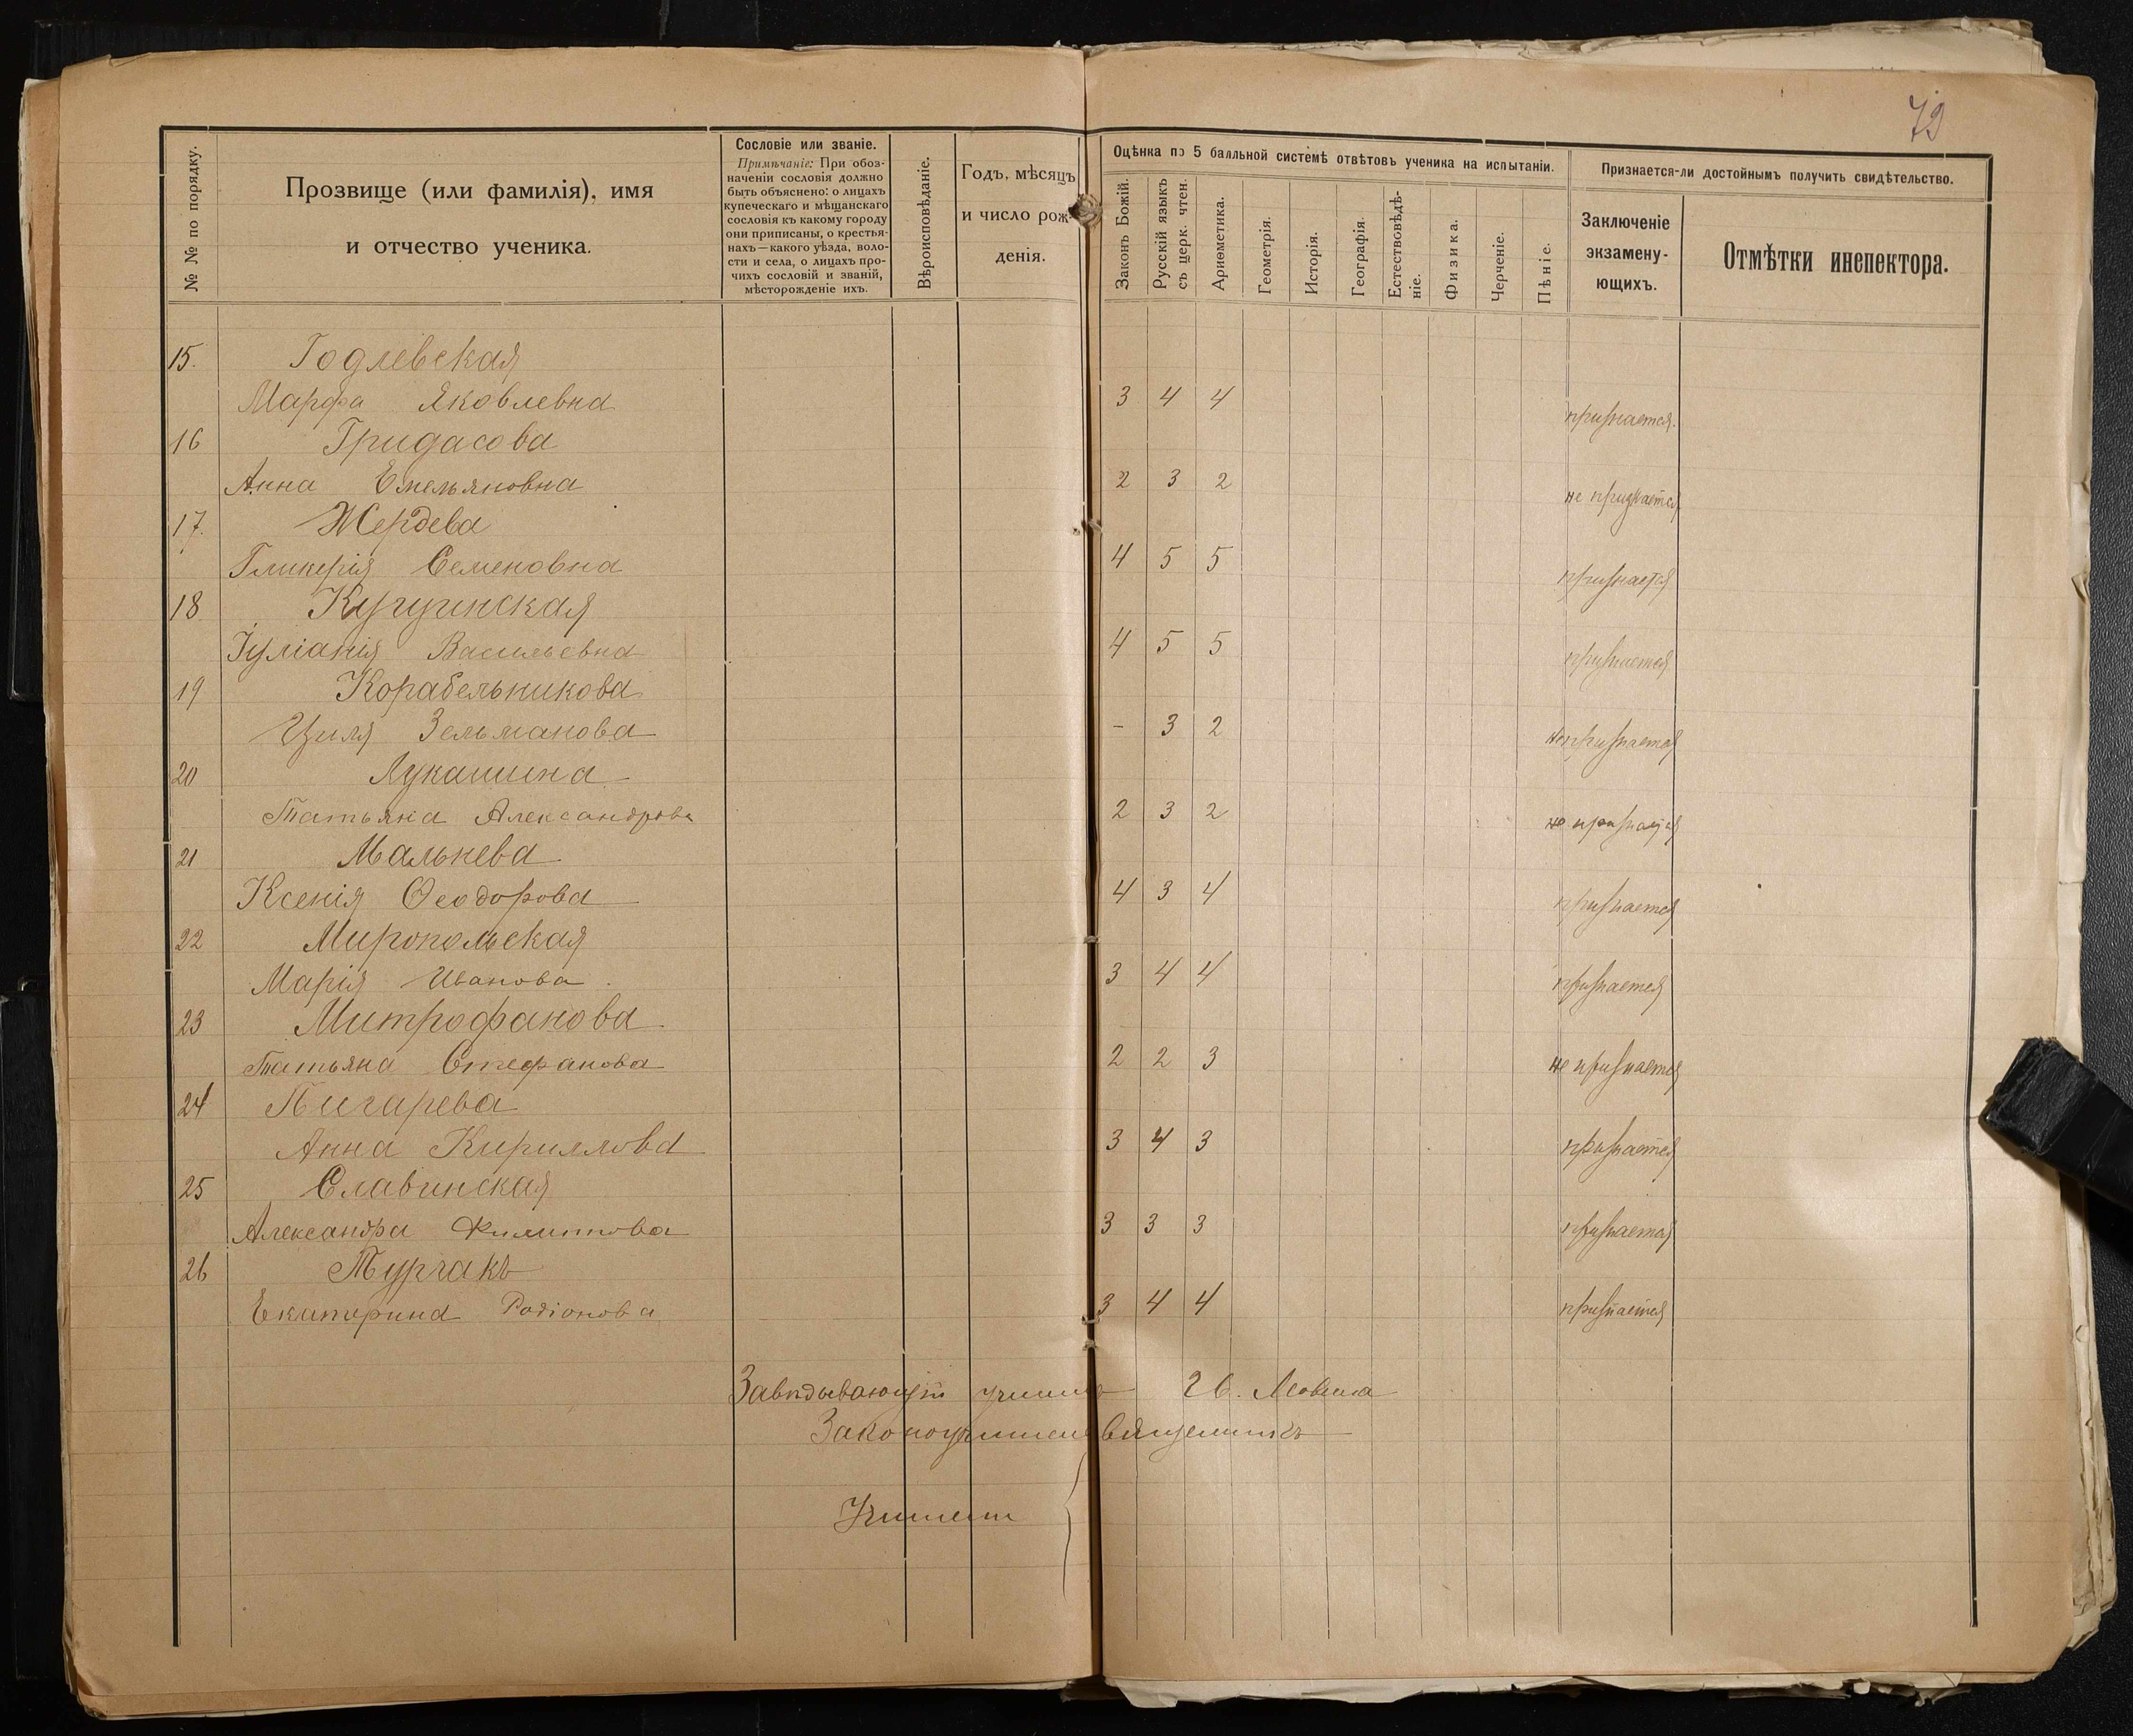 79
№ № по порядку.
Прозвище (или фамилія), имя
и отчество ученика.
Сословіе или званіе.
Примѣчаніе: При обоз-
наченіи сословія должно
быть объяснено: о лицахъ
купеческаго и мѣщанскаго
сословія къ какому городу
они приписаны, о крестья-
нахъ—какого уѣзда, воло-
сти и села, о лицахъ про-
чихъ сословій и званій,
мѣсторожденіе ихъ.
Вѣроисповѣданіе.
Годъ, мѣсяцъ
и число рож-
денія.
Оцѣнка по 5 балльной системѣ отвѣтовъ ученика на испытаніи.
Законъ Божій.
Русскій языкъ
съ церк. чтен.
Ариѳметика.
Геометрія.
Исторія.
Географія.
Естествовѣдѣ-
ніе.
Физика.
Черченіе.
Пѣніе.
Признается-ли достойнымъ получить свидѣтельство.
Заключеніе
экзамену-
ющихъ.
Отмѣтки инспектора.
15. Годлевская
Марфа Яковлевна 3 4 4 признается.
16 Гридасова
Анна Емельяновна 2 3 2 не признается
17. Жердева
Гликерія Семеновна 4 5 5 признается
18
Іуліанія Васильевна 4 5 5 признается
19 Корабельникова
Циля Зельманова - 3 2 не признается
20 Лукашина
Татьяна Александрова 2 3 2 не признается
21 Малькева
Ксенія Ѳеодорова 4 3 4 признается
22 Миропольская
Марія Иванова 3 4 4 признается
23 Митрофанова
Татьяна Стефанова 2 2 3 не признается
24 Пигарева
Анна Кириллова 3 4 3 признается
25 Славинская
Александра Филиппова 3 3 3 признается
26 Турчакъ
Екатерина Родіонова 3 4 4 признается
Завѣдывающій
Учители